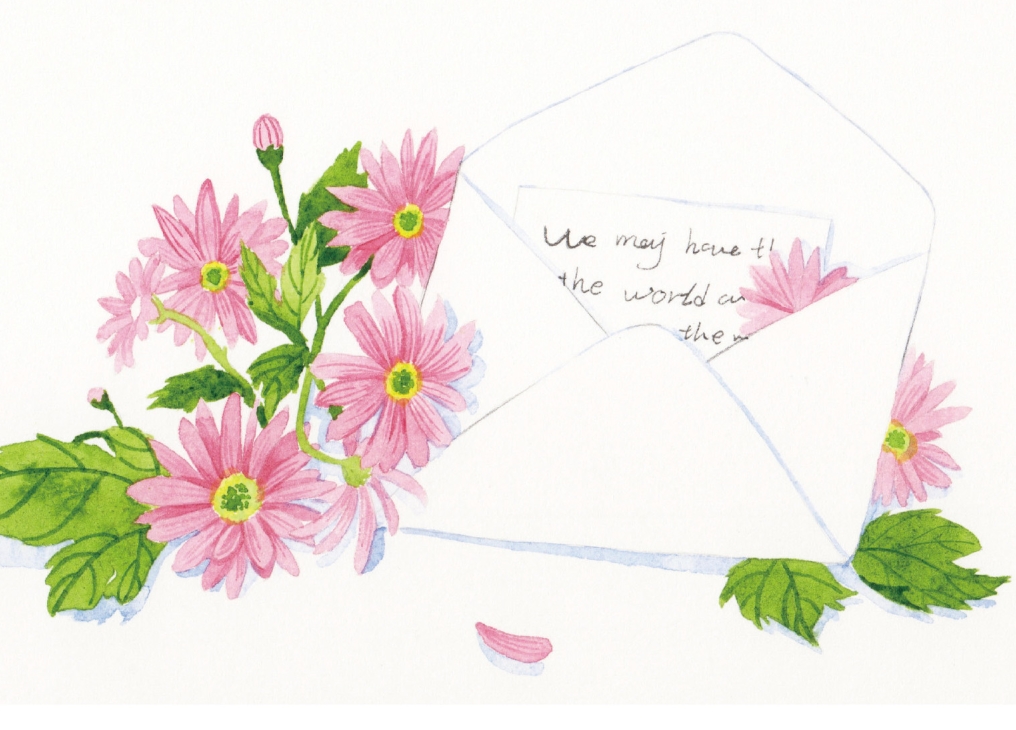 We may have
the world
the